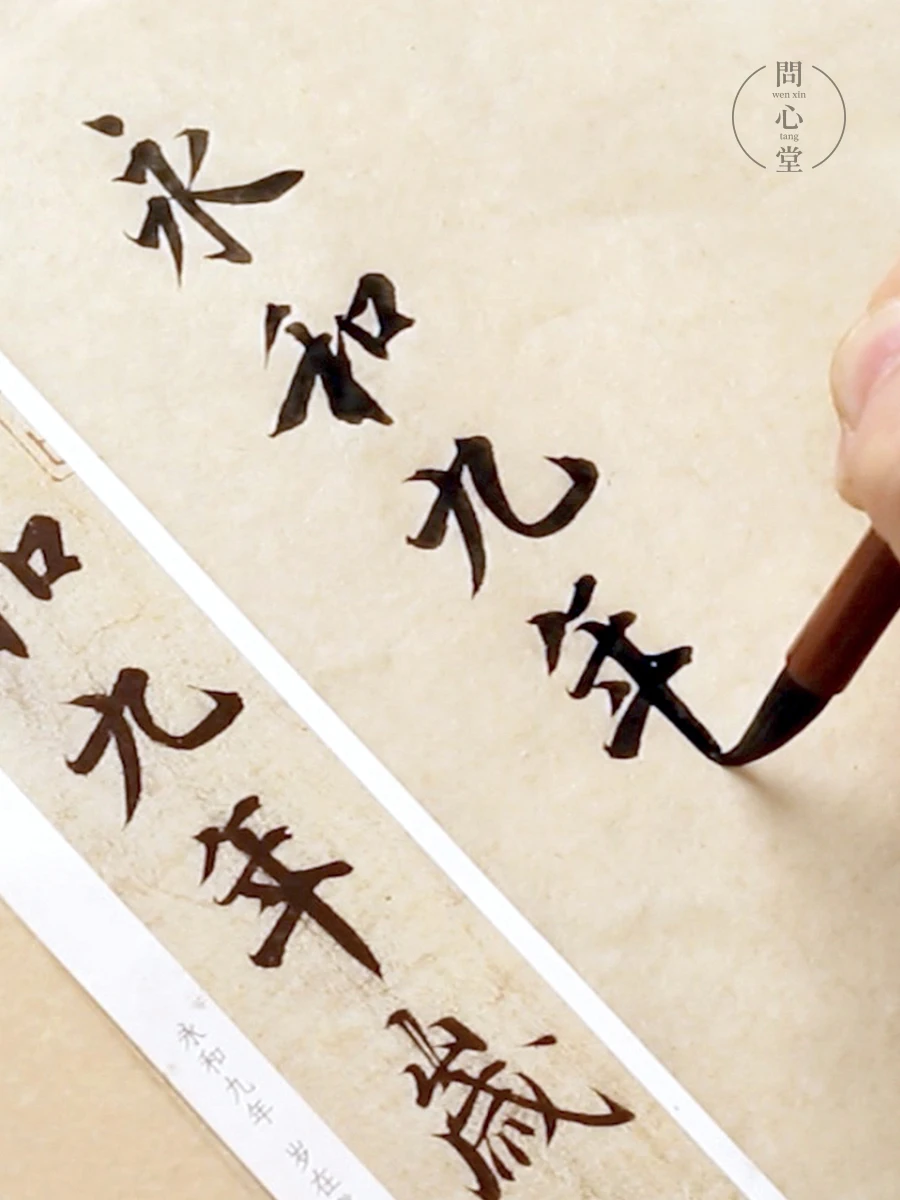 問
wen xin
心
tang
堂
永和九年
和九年歲
永和九年 岁在